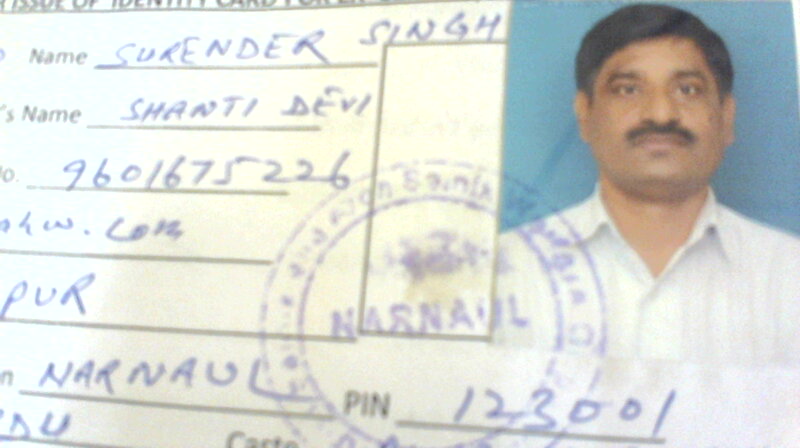 ISSUE OF IDENTITY CARD FOR
Name SURENDER SINGH
's Name SHANTI DEVI
o. 9601675226
. Com
PUR
n NARNAUL PIN 123001
DU
Caste
NARNAUL